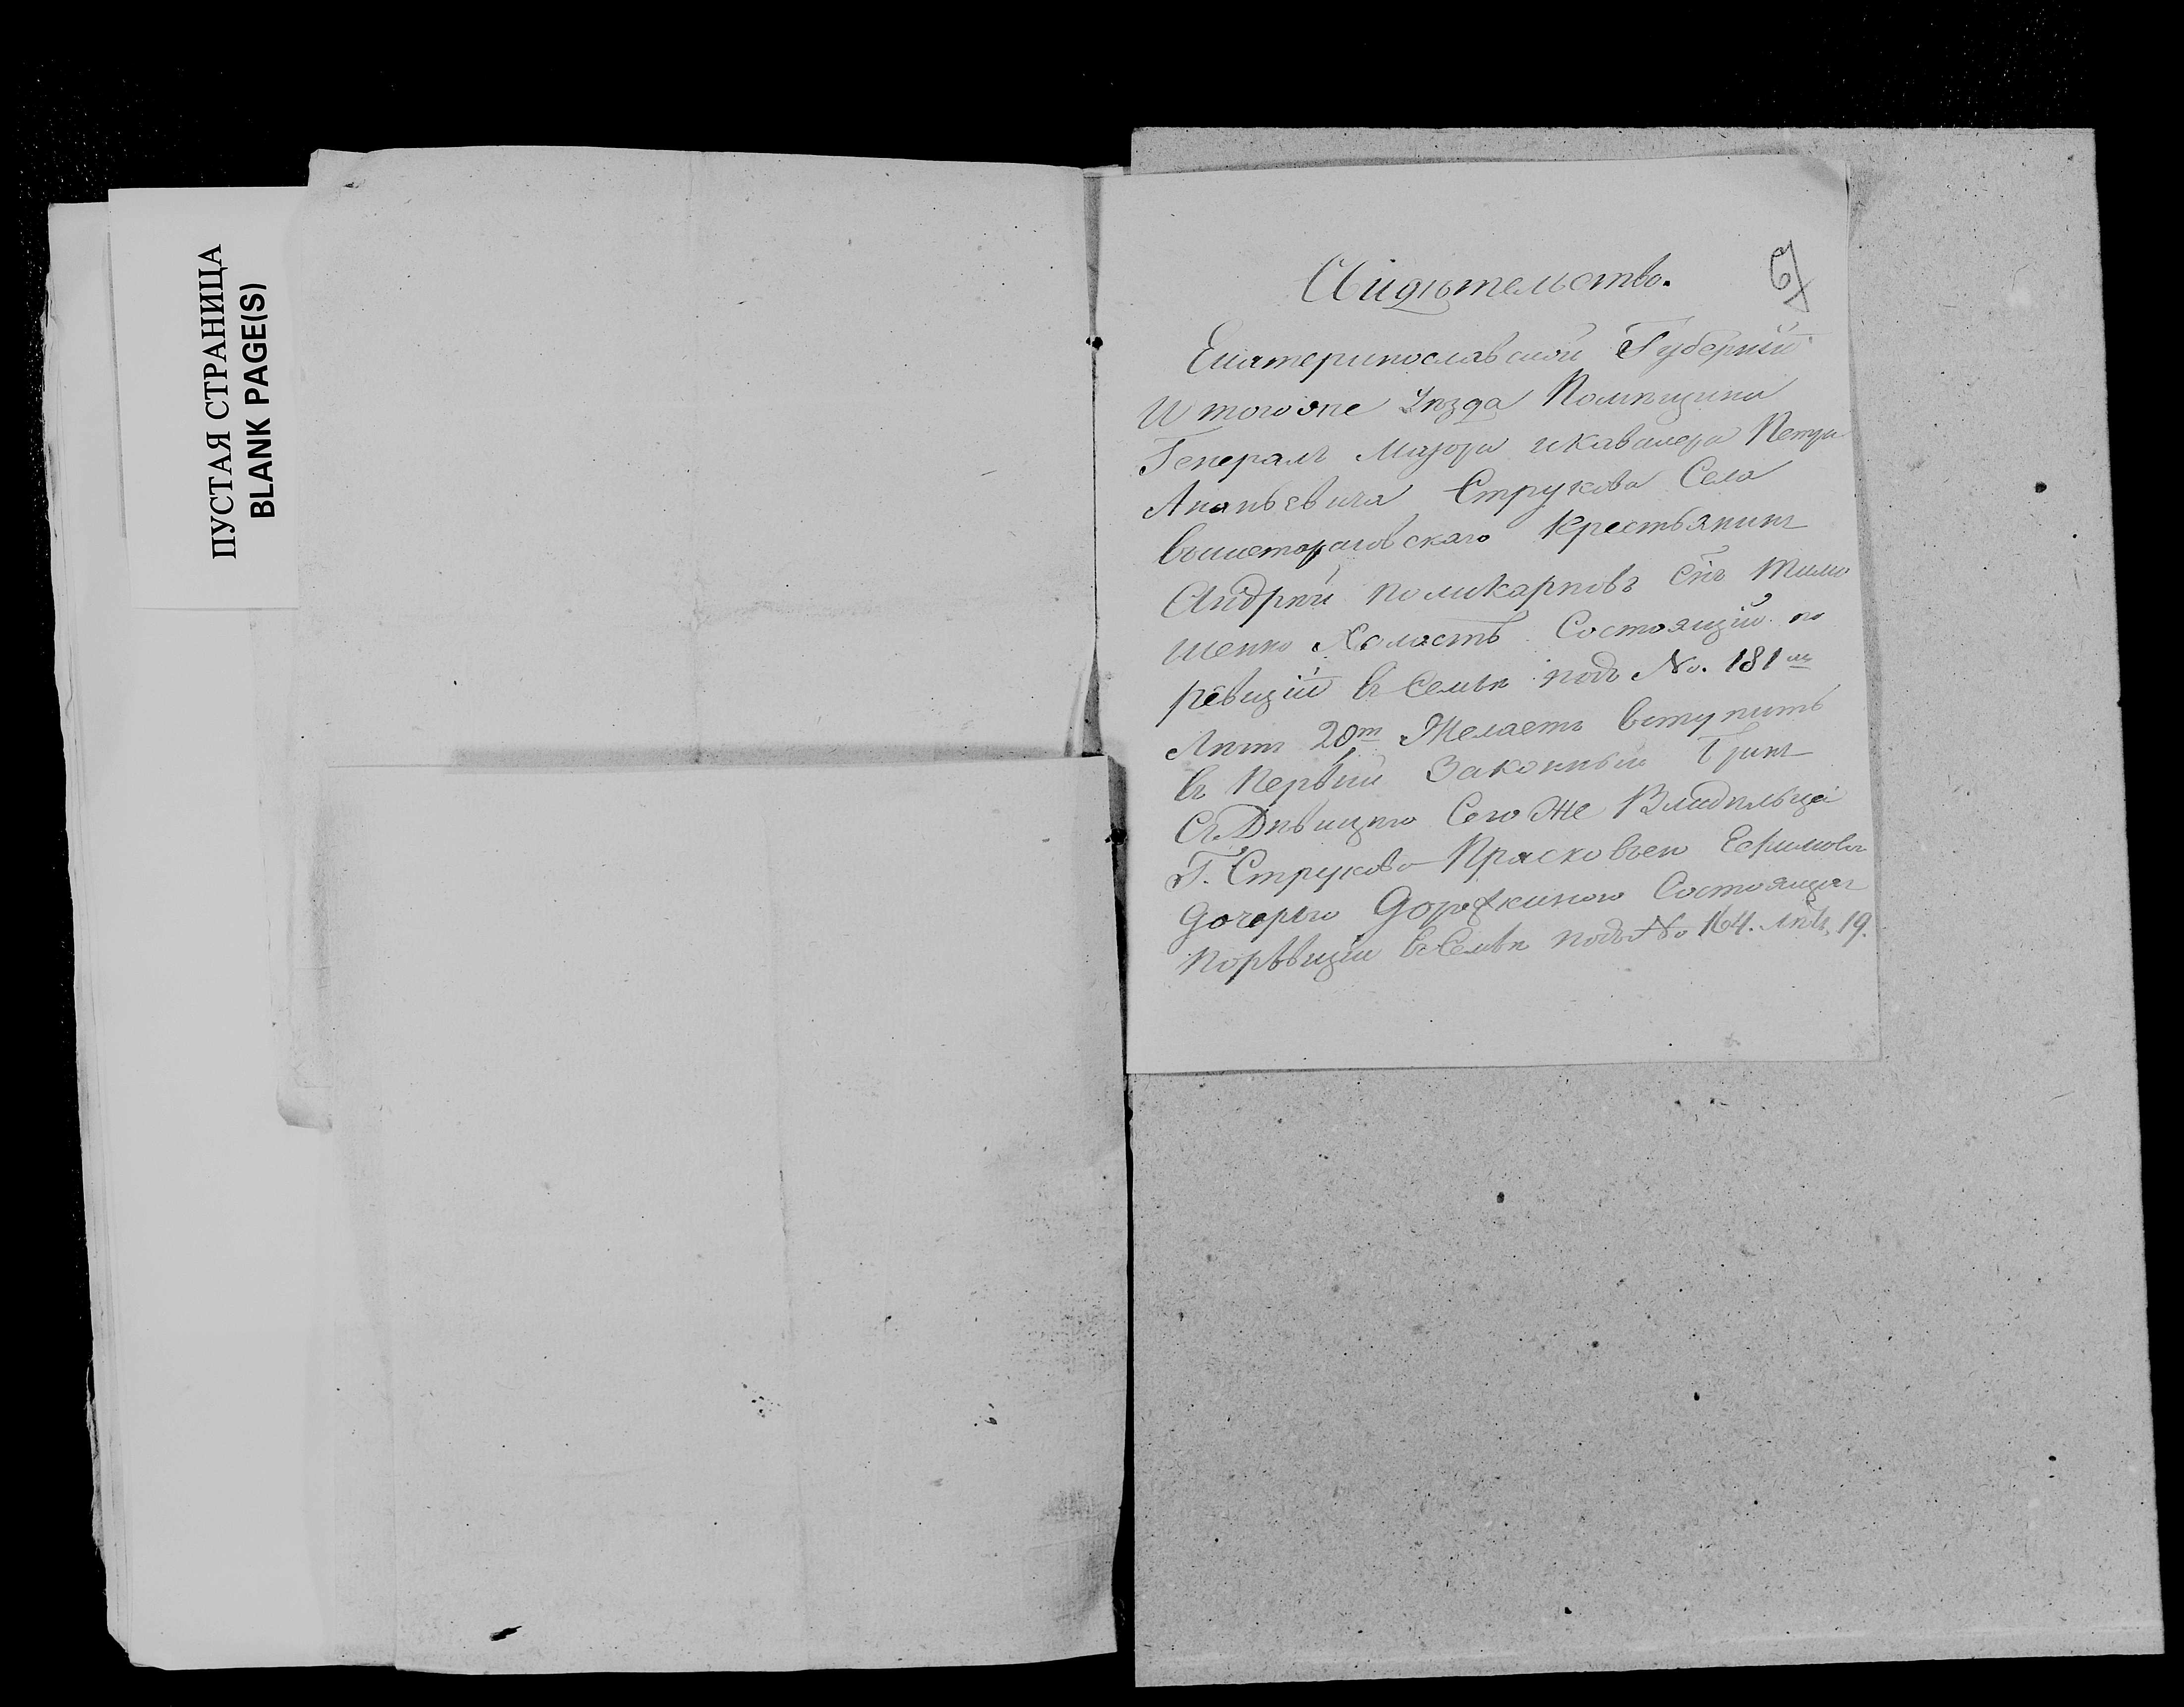 ПУСТАЯ СТРАНИЦА
BLANK PAGE(S)
67
Свидѣтельство.
Екатеринославской Губерніи
И тогоже Уезда Помѣщика
Генералъ Маіора икавалера Петра
Ананьевича Струкова Села
Крестьянинъ
Андрѣй поликарповъ Снъ Тимо
шенко Холастъ Состоящій по
ревизіи въ Семьѣ подъ No. 181м
Лѣтъ 20т Желаетъ вступить
въ Первый Законный Бракъ
Съ Дѣвицею Сего Же Владѣльца
Г. Струкова Прасковьею Ефимова
дочерью Состоящая
поревизіи въ Семьѣ подъ No 164. лѣтъ, 19.